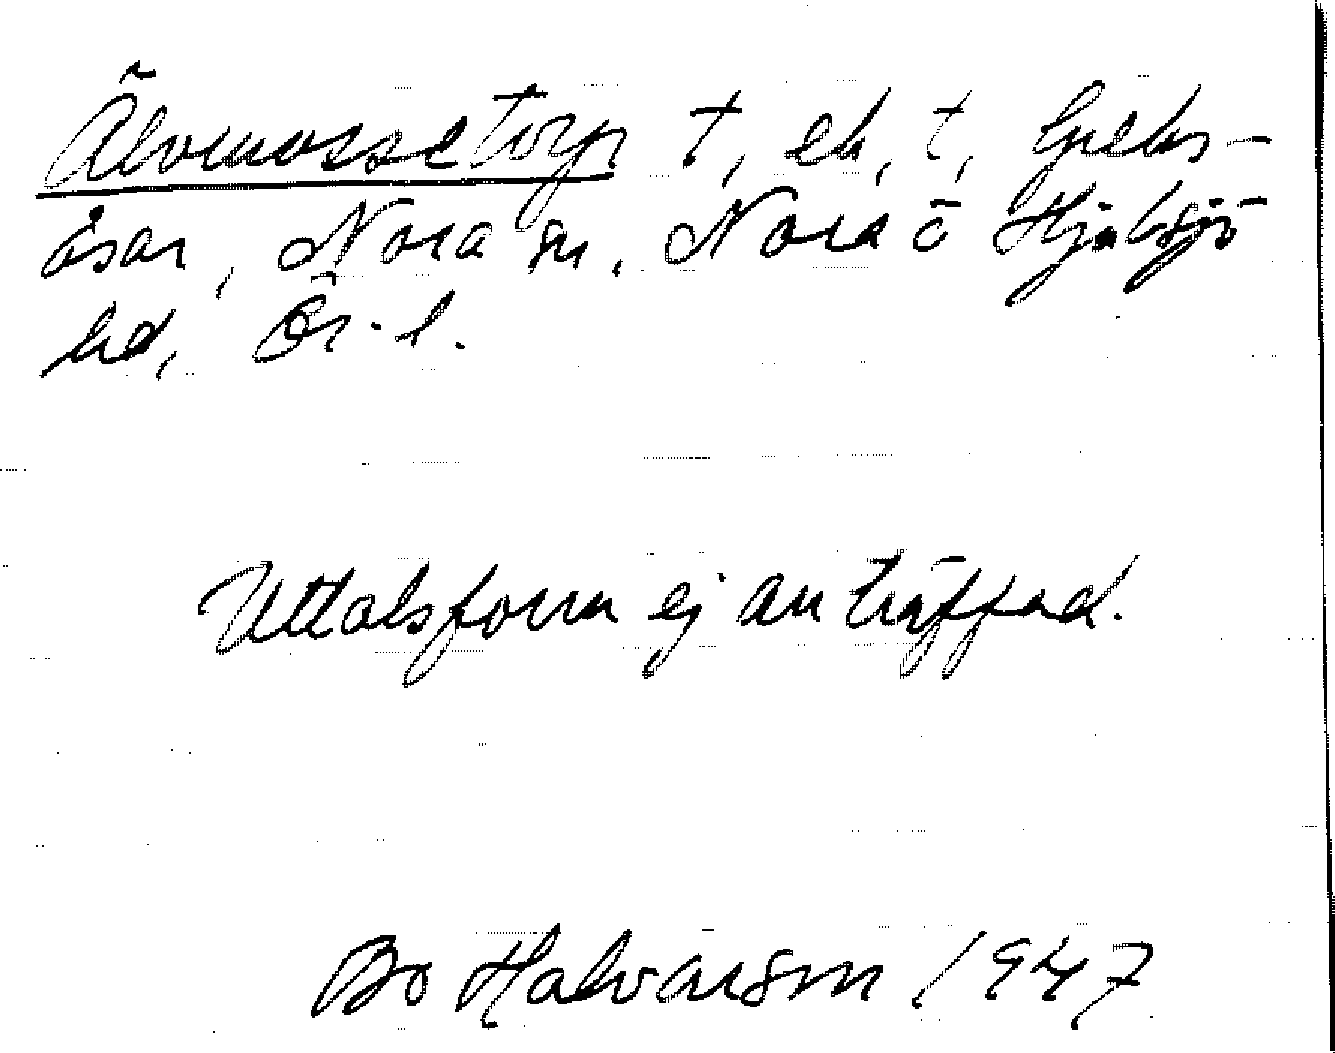 Älvmossetorp t, ek, t, Greks-
åsar, Nora sn. Nora o Hjulsjö
hd, Ör. l.
Uttalsform ej anträffad.
Bo Halvarson 1947